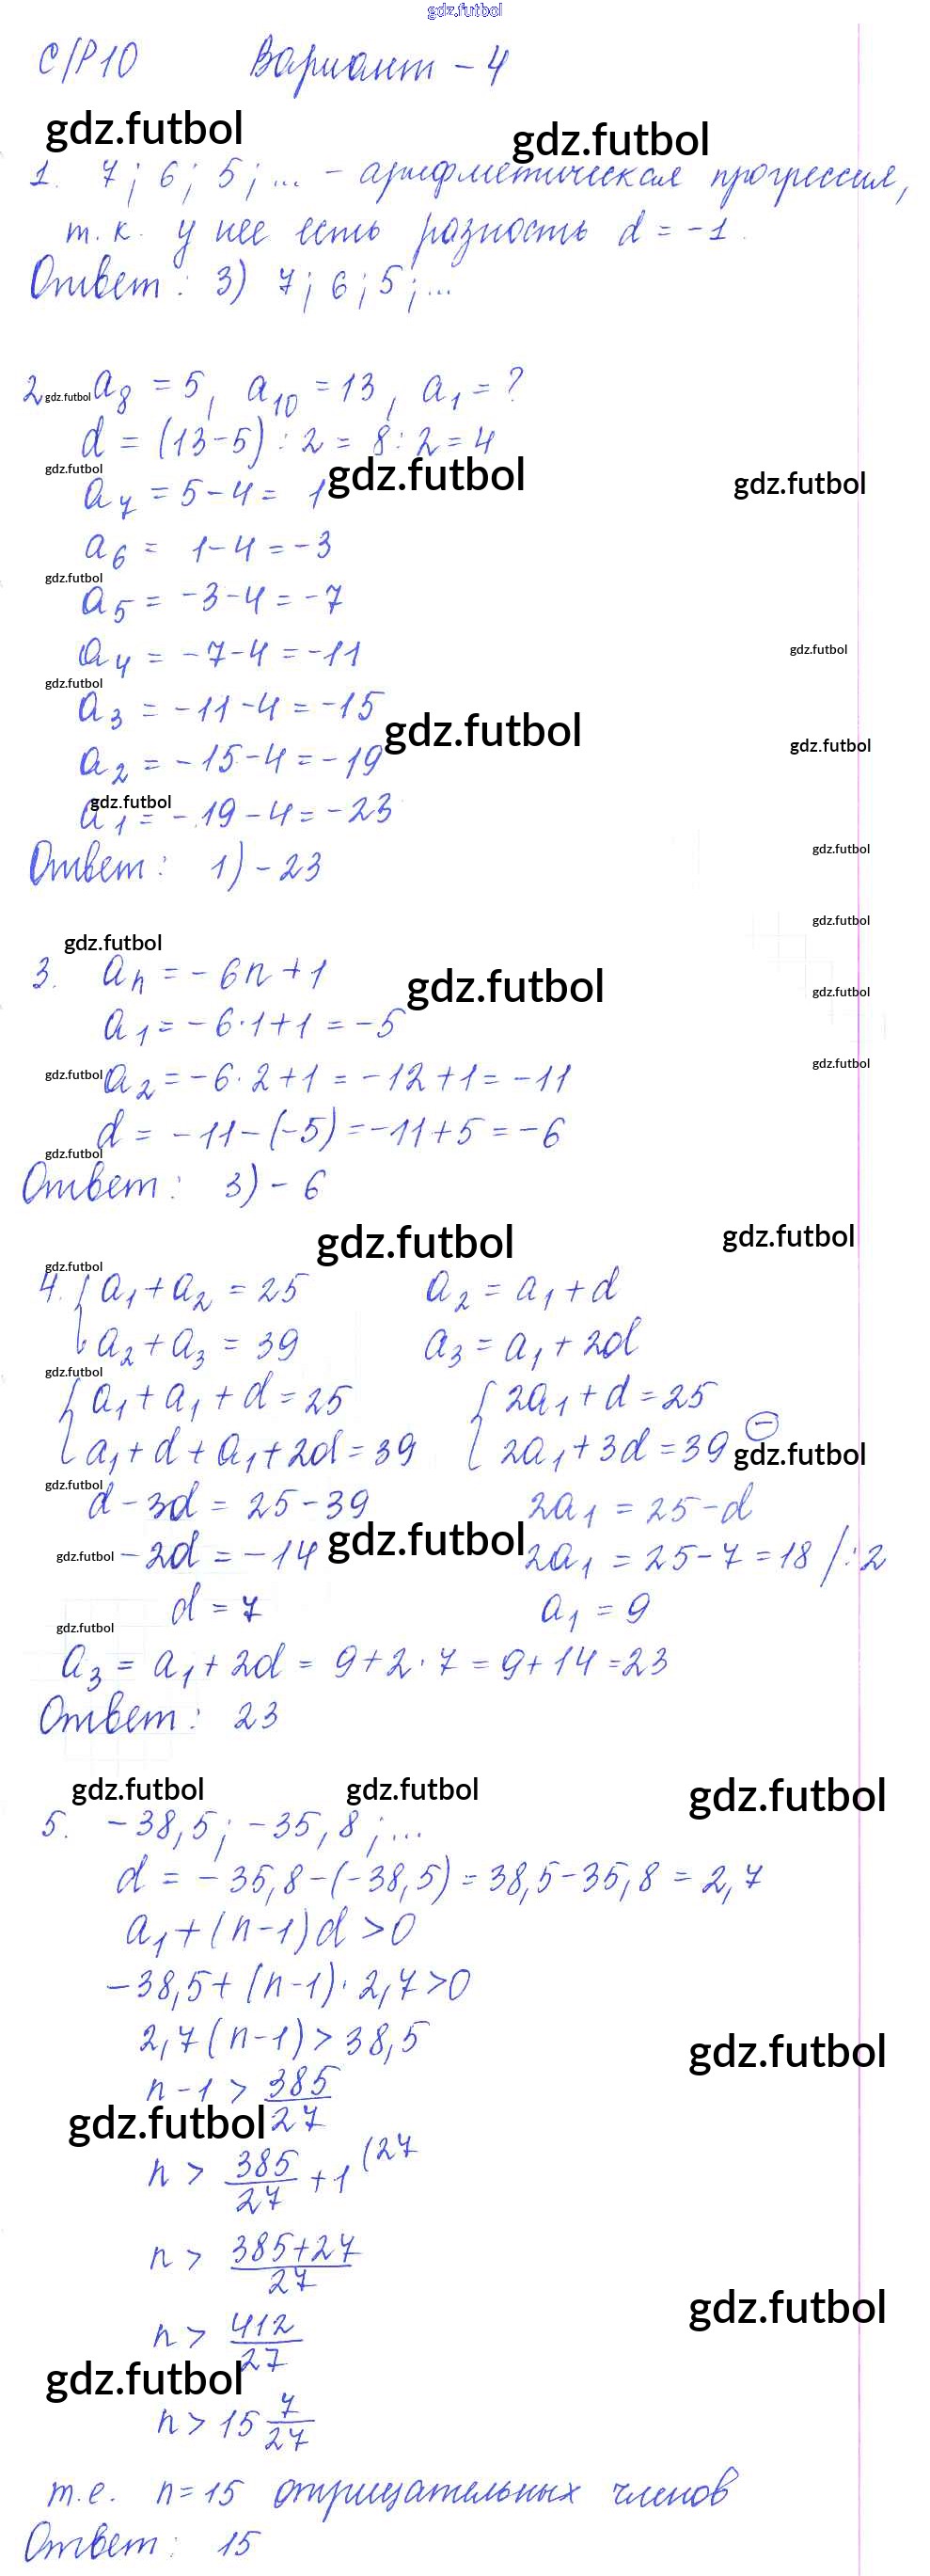 gdz.futbol
С/Р 10 Вариант - 4
gdz.futbol gdz.futbol
1. 7; 6; 5; ... - арифметическая прогрессия,
т.к. у нее есть разность d = -1.
Ответ: 3) 7; 6; 5; ...
2. gdz.futbol a₈ = 5, a₁₀ = 13, a₁ = ?
d = (13-5) : 2 = 8 : 2 = 4
gdz.futbol gdz.futbol gdz.futbol
a₇ = 5 - 4 = 1
a₆ = 1 - 4 = -3
gdz.futbol
a₅ = -3 - 4 = -7
a₄ = -7 - 4 = -11
gdz.futbol
gdz.futbol
a₃ = -11 - 4 = -15
gdz.futbol gdz.futbol
a₂ = -15 - 4 = -19
gdz.futbol
a₁ = -19 - 4 = -23
gdz.futbol
Ответ: 1) -23
gdz.futbol
gdz.futbol
3. aₙ = -6n + 1
gdz.futbol gdz.futbol
a₁ = -6·1 + 1 = -5
gdz.futbol gdz.futbol
a₂ = -6·2 + 1 = -12 + 1 = -11
d = -11 - (-5) = -11 + 5 = -6
gdz.futbol
Ответ: 3) -6
gdz.futbol gdz.futbol
gdz.futbol
4. { a₁ + a₂ = 25 a₂ = a₁ + d
a₂ + a₃ = 39 a₃ = a₁ + 2d
gdz.futbol
{ a₁ + a₁ + d = 25 { 2a₁ + d = 25
a₁ + d + a₁ + 2d = 39 2a₁ + 3d = 39 (-)
gdz.futbol
gdz.futbol
d - 3d = 25 - 39 2a₁ = 25 - d
gdz.futbol gdz.futbol
-2d = -14 2a₁ = 25 - 7 = 18 /:2
d = 7 a₁ = 9
gdz.futbol
a₃ = a₁ + 2d = 9 + 2·7 = 9 + 14 = 23
Ответ: 23
gdz.futbol gdz.futbol gdz.futbol
5. -38,5; -35,8; ...
d = -35,8 - (-38,5) = 38,5 - 35,8 = 2,7
a₁ + (n-1)d > 0
-38,5 + (n-1)·2,7 > 0
2,7(n-1) > 38,5
gdz.futbol
n - 1 > 385/27
gdz.futbol
n > 385/27 + 1 (27
n > 385+27/27
gdz.futbol
n > 412/27
gdz.futbol
n > 15 7/27
т.е. n = 15 отрицательных членов
Ответ: 15